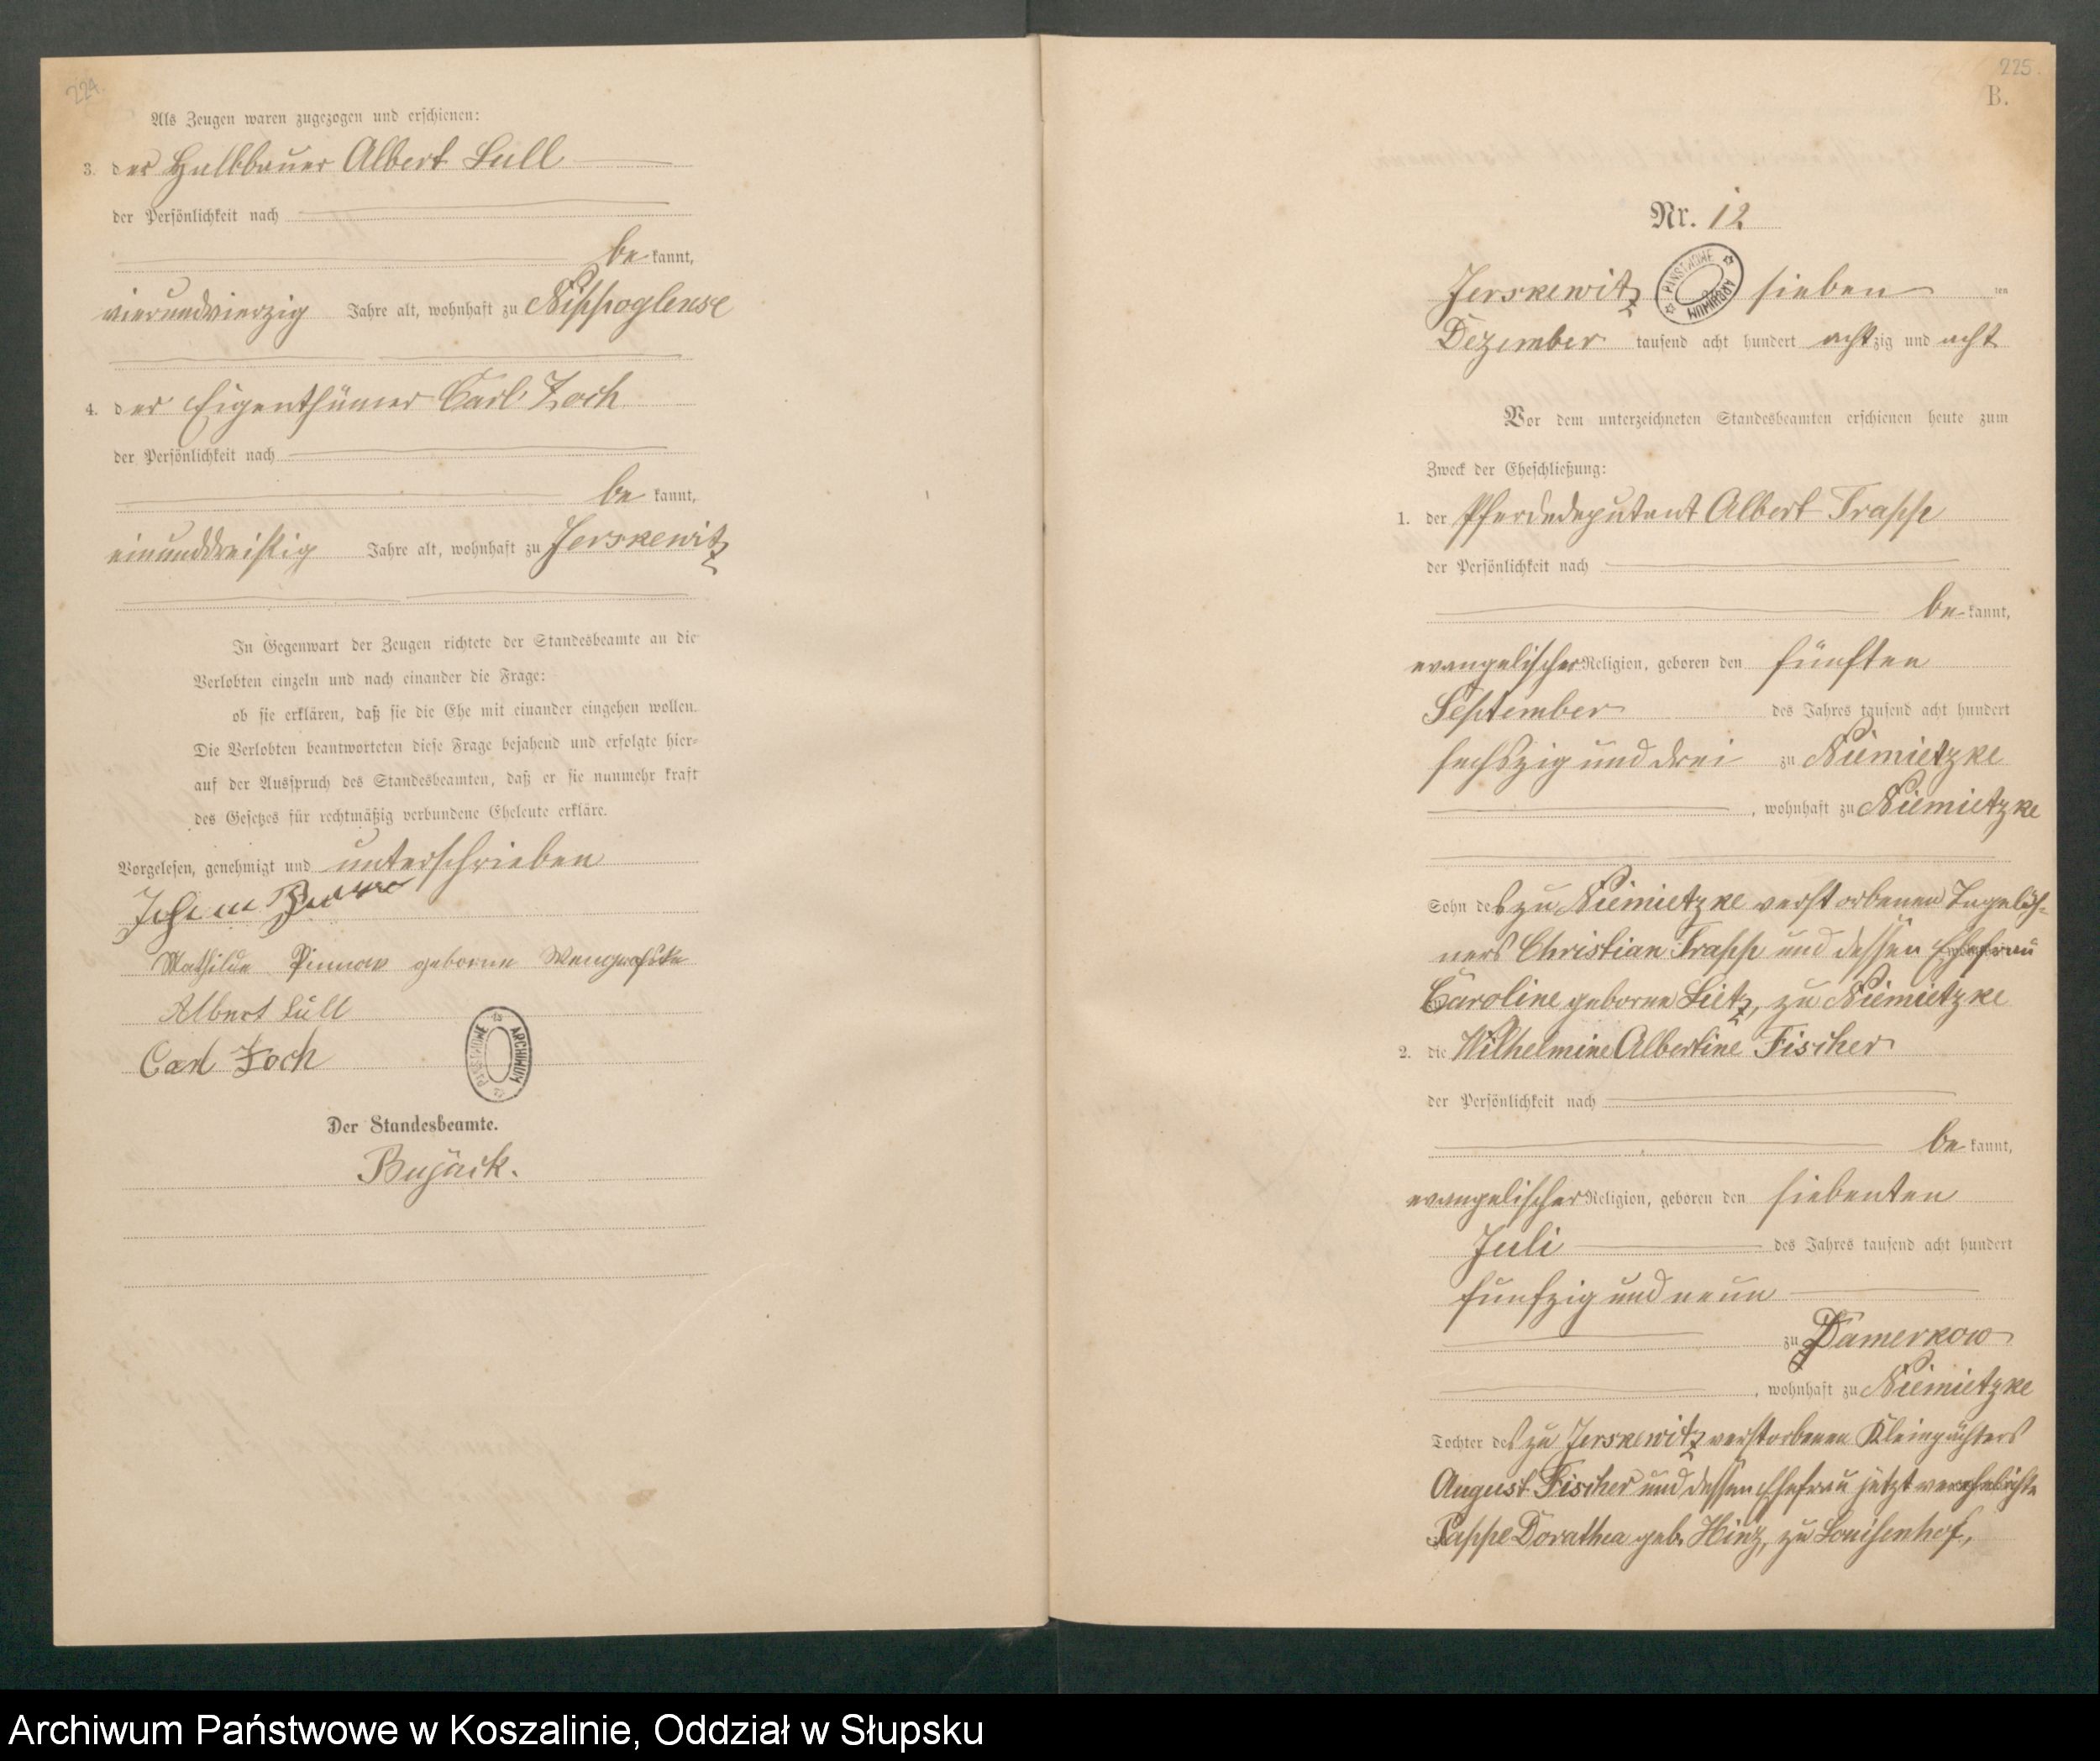 224.
Als Zeugen waren zugezogen und erschienen:
3. der Halbbauer Albert Lull
der Persönlichkeit nach
be kannt,
vierundvierzig Jahre alt, wohnhaft zu Nippoglense
4. der Eigenthümer Carl Zoch
der Persönlichkeit nach
be kannt,
einunddreißig Jahre alt, wohnhaft zu Jerskewitz
In Gegenwart der Zeugen richtete der Standesbeamte an die
Verlobten einzeln und nach einander die Frage:
ob sie erklären, daß sie die Ehe mit einander eingehen wollen.
Die Verlobten beantworteten diese Frage bejahend und erfolgte hier-
auf der Ausspruch des Standesbeamten, daß er sie nunmehr kraft
des Gesetzes für rechtmäßig verbundene Eheleute erkläre.
Vorgelesen, genehmigt und unterschrieben
Mathilde geborne
Albert Lüll
Carl Zoch
PAŃSTWOWE ARCHIWUM
Der Standesbeamte.
Bujack.
225.
B.
Nr. 12
Jerskewitz sieben ten
PAŃSTWOWE ARCHIWUM
Dezember tausend acht hundert achtzig und acht
Vor dem unterzeichneten Standesbeamten erschienen heute zum
Zweck der Eheschließung:
1. der Pferdedeputant Albert Trapp
der Persönlichkeit nach
be kannt,
evangelischer Religion, geboren den fünften
September des Jahres tausend acht hundert
sechszig und drei zu Niemietzke
, wohnhaft zu Niemietzke
Sohn des zu Niemietzke verstorbenen Tagelöh-
ners Christian Trapp und dessen Ehefrau
Caroline geborne Lietz, zu Niemietzke
2. die Wilhelmine Albertine Fischer
der Persönlichkeit nach
be kannt,
evangelischer Religion, geboren den siebenten
Juli des Jahres tausend acht hundert
fünfzig und neun
zu Damerkow
, wohnhaft zu Niemietzke
Tochter des zu Jerskewitz verstorbenen Kleinpächters
August Fischer und dessen Ehefrau jetzt verehelichte
Pappe Dorathea geb. Hinz, zu Louisenhof,
Archiwum Państwowe w Koszalinie, Oddział w Słupsku